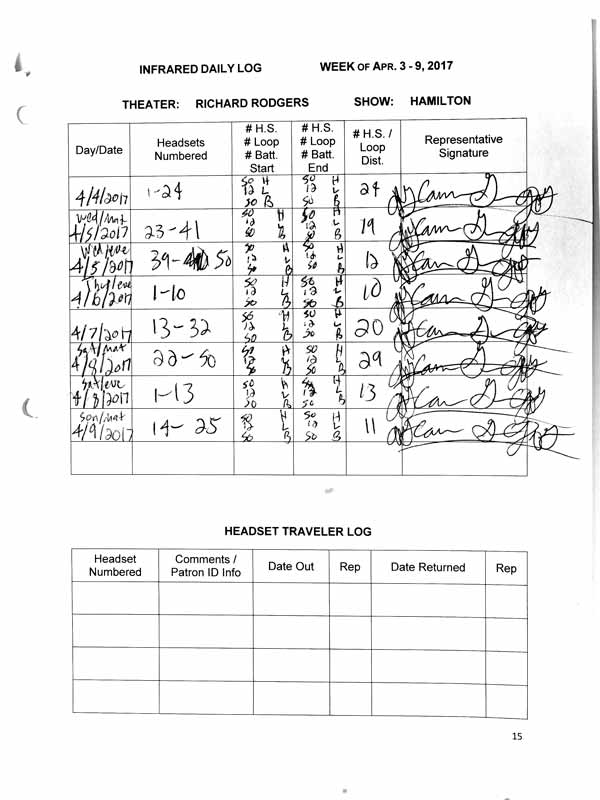 INFRARED DAILY LOG WEEK OF APR. 3 - 9, 2017
THEATER: RICHARD RODGERS SHOW: HAMILTON
Day/Date Headsets Numbered # H.S. # Loop # Batt. Start # H.S. # Loop # Batt. End # H.S. / Loop Dist. Representative Signature
4/4/2017 1-24 50 H 12 L 50 B 50 H 12 L 50 B 24
Wed/mat 4/5/2017 23-41 50 H 12 L 50 B 50 H 12 L 50 B 19
Wed/eve 4/5/2017 39- 50 50 H 12 L 50 B 50 H 12 L 50 B 12
Thu/eve 4/6/2017 1-10 50 H 12 L 50 B 50 H 12 L 50 B 10
4/7/2017 13-32 50 H 12 L 50 B 50 H 12 L 50 B 20
Sat/mat 4/8/2017 22-50 50 H 12 L 50 B 50 H 12 L 50 B 29
Sat/eve 4/8/2017 1-13 50 H 12 L 50 B 50 H 12 L 50 B 13
Son/mat 4/9/2017 14-25 50 H 12 L 50 B 50 H 12 L 50 B 11
HEADSET TRAVELER LOG
Headset Numbered Comments / Patron ID Info Date Out Rep Date Returned Rep
15